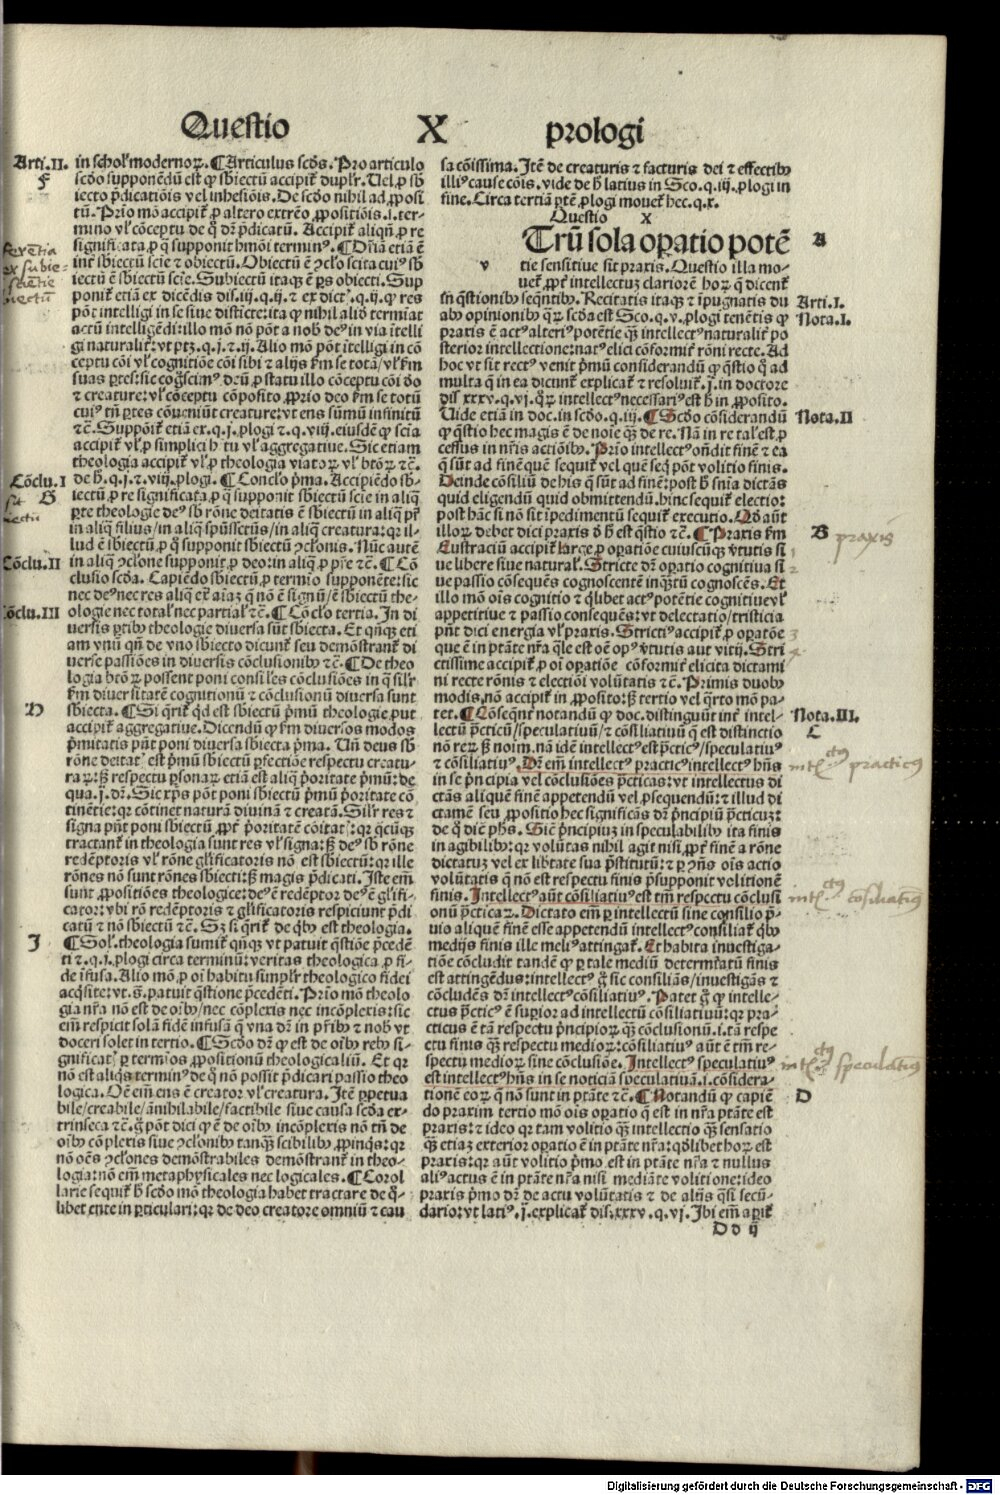 Questio X prologi
Arti.II.
F
in schol' modernoꝝ. ¶Articulus scd̄s. Pro articulo
scd̄o supponēdū est ꝙ sbiectū accipit᷑ duplr̄. Uel ꝓ sb
iecto p̄dicatiōis vel inhesiōis. De scd̄o nihil ad ꝓposi
tū. Prīo mō accipit᷑ ꝓ altero extrēo ꝓpositiōis .i. ter-
mino vl' cōceptu de q̊ dr̄ p̄dicatū. Accipit᷑ aliqn̄ ꝓ re
significata ꝓ q̄ supponit hmōi terminꝰ. ¶Dr̄iā etiā ē
int᷑ sbiectū scīe ⁊ obiectū. Obiectū ē ꝯclo scita cuiꝰ sb
iectū ē sbiectū scīe. Subiectū itaqꝫ ē ꝑs obiecti. Sup
ponit᷑ etiā ex dicēdis dis.iij.q.ij. ⁊ ex dict̄.q.ij.q̄ res
pōt intelligi in se siue distīcte: ita ꝙ nihil aliō terminat
actū intelligēdi: illo mō nō pōt a nob̄ deꝰ in via ītelli
gi naturalit᷑: vt ptꝫ.q.j.⁊ ij. Alio mō pōt ītelligi in cō
ceptu cōi vl' cognitiōe cōi sibi ⁊ alijs km̄ se totā/vl' km̄
suas ꝑtes: sic cog̊scimꝰ deū ꝓ statu illo cōceptu cōi d̄o
⁊ creature: vl' cōceptu cōposito ꝓprio deo km̄ se totū
cuiꝰ tn̄ ꝑtes cōueniūt creature: vt ens sūmū infinitū
⁊c̄. Suppōit᷑ etiā ex.q.j.plogi ⁊.q.viij.eiusdē ꝙ scīa
accipit᷑ vl' ꝓ simplici habitu vl' ꝓ aggregatiue. Sic etiam
theologia accipit᷑ vl' ꝓ theologia viatoꝝ vl' btōꝝ ⁊c̄.
de h̄.q.j.⁊.viij.plogi. ¶Conclo p̄ma. Accipiēdo sb-
Cōclu.I
G
iectū ꝓ re significata ꝓ q̄ supponit sbiectū scīe in aliq̄
ꝑte theologie deꝰ sb rōne deitatis ē sbiectū in aliq̄ pr̄
in aliq̄ filius/in aliq̄ spūssctūs/in aliq̄ creatura: qr il-
lud ē sbiectū ꝓ q̊ supponit sbiectū ꝯclonis. Nūc autē
Cōclu.II
in aliq̄ ꝯclone supponit ꝓ deo: in aliq̄ ꝓ pr̄e ⁊c̄. ¶Cō
clusio scd̄a. Capiēdo sbiectū ꝓ termīo supponēte: sic
nec deꝰ nec res aliq̄ ext̄ aiaꝫ q̄ nō ē signū/ē sbiectū the-
Cōclu.III
ologie nec total' nec partial' ⁊c̄. ¶Cōclo tertia. In di
uersis ꝑtibꝰ theologie diuersa sūt sbiecta. Et qn̄qꝫ eti
am vnū qn̄ de vno sbiecto dicunt᷑ seu demōstrant᷑ di
uerse passiōes in diuersis cōclusionibꝰ ⁊c̄. ¶De theo
logia btōꝝ possent poni consil'es cōclusiōes in q̄ sil'r
km̄ diuersitatē cognitionū ⁊ cōclusionū diuersa sunt
H
sbiecta. ¶Si q̄rit᷑ qd est sbiectū p̄mū theologie put
accipit᷑ aggregatiue. Dicendū ꝙ km̄ diuersos modos
p̄mitatis pn̄t poni diuersa sbiecta p̄ma. Un̄ deus sb
rōne deitat̄ est p̄mū sbiectū ꝑfectiōe respectu creatu-
raꝝ: sꝫ respectu ꝑsonaꝝ etiā est aliq̄ p̄oritate p̄mū: de
qua.j.dr̄. Sic xp̄s pōt poni sbiectū p̄mū p̄oritate cō
tinētie: qr cōtinet naturā diuinā ⁊ creatā. Sil'r res ⁊
signa pn̄t poni sbiectū ꝓpt᷑ p̄oritatē cōitat̄: qr qcūqꝫ
tractant᷑ in theologia sunt res vl' signa: sꝫ deꝰ sb rōne
redēptoris vl' rōne gl'ificatoris nō est sbiectū: qr ille
rōnes nō sunt rōnes sbiecti: sꝫ magis p̄dicati. Iste em̄
sunt ꝓpositiōes theologice: deꝰ ē redēptor deꝰ ē gl'ifi-
cator: vbi rō redēptoris ⁊ gl'ificatoris respiciunt p̄di
catū ⁊ nō sbiectū ⁊c̄. Sꝫ si q̄rit᷑ de qbꝰ est theologia.
I
¶Sol'. theologia sumit᷑ qn̄qꝫ vt patuit q̄stiōe p̄cedē
ti ⁊.q.i.plogi circa terminū: veritas theologica ꝓ fi-
de īfusa. Alio mō ꝓ oī habitu simplr̄ theologico fidei
acq̄site: vt.s.patuit q̄stione p̄cedēti. Prīo mō theolo
gia nr̄a nō est de oībꝰ/nec cōplexis nec incōplexis: sic
em̄ respicit solā fidē infusā q̄ vna dr̄ in pr̄ibꝰ ⁊ nob̄ vt
doceri solet in tertio. ¶Scd̄o dr̄ ꝙ est de oībꝰ rebꝰ si-
gnificat̄ ꝑ termīos ꝓpositionū theologicaliū. Et qr
nō est aliqs terminꝰ de q̊ nō possit p̄dicari passio theo
logica. Oē em̄ ens ē creator vl' creatura. Itē ꝑpetua
bile/creabile/ānihilabile/factibile siue causa scd̄a ex-
trinseca ⁊c̄. g̊ pōt dici ꝙ ē de oībꝰ incōplexis nō tn̄ de
oībꝰ cōplexis siue ꝯclonibꝰ tanqꝫ scibilibꝰ ꝓpinqs: qr
nō oēs ꝯclones demōstrabiles demōstrant᷑ in theo-
logia: nō em̄ metaphysicales nec logicales. ¶Corol
larie sequit᷑ ꝙ scd̄o mō theologia habet tractare de q̊-
libet ente in ꝑticulari: qr de deo creatore omniū ⁊ cau
sa cōissima. Itē de creaturis ⁊ facturis dei ⁊ effectibꝰ
illiꝰ cause cōis. vide de h̄ latius in Sco.q.iij.plogi in
fine. Circa tertiā ꝑtē plogi mouet᷑ hec.q.x.
Questio x
A
Trū sola oꝑatio potē
v
tie sensitiue sit praxis. Questio illa mo-
uet᷑ ꝓpt᷑ intellectuꝫ clariorē hoꝝ q̄ dicent᷑
Arti.I.
in q̄stionibꝰ seq̄ntibꝰ. Recitatis itaqꝫ ⁊ īpugnatis du
Nota.I.
abꝰ opinionibꝰ quaꝝ scd̄a est Sco.q.v.plogi tenētis ꝙ
praxis ē actꝰ alteriꝰ potētie qꝫ intellectꝰ naturalit᷑ po
sterior intellectione: natꝰ elici cōformit᷑ rōni recte. Ad
hoc vt sit rectꝰ venit p̄mū considerandū ꝙ q̄stio q̊ ad
multa q̄ in ea dicunt᷑ explicat᷑ ⁊ resoluit᷑.j.in doctore
dis.xxxv.q.vj.q̄ꝝ intellectꝰ necessariꝰ est h̄ in ꝓposito.
Nota.II
Uide etiā in doc.in scd̄o.q.iij. ¶Scd̄o cōsiderandū
ꝙ q̄stio hec magis ē de noīe qꝫ de re. Nā in re tal' est ꝓ
cessus in nr̄is actiōibꝰ. Prīo intellectꝰ on̄dit finē ⁊ ea
q̄ sūt ad finē quē sequit᷑ vel quē seq̄ pōt volitio finis.
Deinde cōsiliū de his q̄ sūt ad finē: post h̄ sn̄īa dictās
quid eligendū quid obmittendū. hinc sequit᷑ electio:
post hāc si nō sit īpedimentū sequit᷑ executio. Qd aūt
B
illoꝝ debet dici praxis d̄ h̄ est q̄stio ⁊c̄. ¶Praxis km̄
praxis
Eustraciū accipit᷑ large ꝓ oꝑatiōe cuiuscūqꝫ v̄tutis si
ue libere siue natural'. Stricte dr̄ oꝑatio cognitiua si
ue passio cōsequēs cognoscentē inqꝫtū cognoscēs. Et
illo mō oīs cognitio ⁊ qlibet actꝰ potētie cognitiue vl'
appetitiue ⁊ passio consequēs: vt delectatio/tristicia
pn̄t dici energia vl' praxis. Strictiꝰ accipit᷑ ꝓ oꝑatōe
que ē in ptāte nr̄a q̄le est oē opꝰ v̄tutis aut vitij. Stri
ctissime accipit᷑ ꝓ oī oꝑatiōe cōformit᷑ elicita dictami
ni recte rōnis ⁊ electiōi volūtatis ⁊c̄. Primis duobꝰ
modis nō accipit᷑ in ꝓposito: sꝫ tertio vel q̄rto mō pa-
Nota.III.
C
tet. ¶Cōseqn̄t᷑ notandū ꝙ doc.distinguūt int᷑ intel-
lectū p̄cticū/speculatiuū/⁊ cōsiliatiuū q̄ est distinctio
nō reꝝ sꝫ noīm. nā idē intellectꝰ est p̄cticꝰ/speculatiuꝰ
⁊ cōsiliatiuꝰ. Dr̄ em̄ intellectꝰ practicꝰ intellectꝰ hn̄s
practicus
in se p̄ncipia vel cōclusiōes p̄cticas: vt intellectus di
ctās aliquē finē appetendū vel ꝓsequendū: ⁊ illud di
ctamē seu ꝓpositio hec significās dr̄ p̄ncipiū p̄cticuꝫ:
de q̊ dic̄ phs. Sic̄ p̄ncipiuꝫ in speculabilibꝰ ita finis
in agibilibꝰ: qr volūtas nihil agit nisi ꝓpt᷑ finē a rōne
dictatuꝫ vel ex libtate sua p̄stitutū: ⁊ ꝑ ꝯn̄s oīs actio
volūtatis q̄ nō est respectu finis p̄supponit volitionē
finis. Intellectꝰ aūt cōsiliatiuꝰ est tm̄ respectu cōclusi
consiliatiuus
onū p̄cticaꝝ. Dictato em̄ ꝑ intellectū sine consilio p̄-
uio aliquē finē esse appetendū intellectꝰ consiliat᷑ qbꝰ
medijs finis ille meliꝰ attingat᷑. Et habita inuestiga-
tiōe cōcludit tandē ꝙ ꝑ tale mediū determ̄atū finis
est attingēdus: intellectꝰ g̊ sic consiliās/inuestigās ⁊
cōcludēs dr̄ intellectꝰ cōsiliatiuꝰ. Patet g̊ ꝙ intelle-
ctus p̄cticꝰ ē supīor ad intellectū cōsiliatiuū: qr pra-
cticus ē tā respectu p̄ncipioꝝ qꝫ cōclusionū .i. tā respe
ctu finis qꝫ respectu medioꝝ: cōsiliatiuꝰ aūt ē tm̄ re-
spectu medioꝝ siue cōclusiōe. Intellectꝰ speculatiuꝰ
speculatiuus
est intellectꝰ hn̄s in se noticiā speculatiuā .i. cōsidera-
D
tionē eoꝝ q̄ nō sunt in ptāte ⁊c̄. ¶Notandū ꝙ capiē
do praxim tertio mō oīs oꝑatio q̄ est in nr̄a ptāte est
praxis: ⁊ ideo qr tam volitio qꝫ intellectio qꝫ sensatio
qꝫ etiaꝫ exterior oꝑatio ē in ptāte nr̄a: qdlibet hoꝝ est
praxis: qr aūt volitio p̄mo est in ptāte nr̄a ⁊ nullus
aliꝰ actus ē in ptāte nr̄a nisi mediāte volitione: ideo
praxis p̄mo dr̄ de actu volūtatis ⁊ de alijs q̄si secū-
dario: vt latiꝰ.j.explicat᷑ dis.xxxv.q.vj. Ibi em̄ aꝑit᷑
D d ij
Digitalisierung gefördert durch die Deutsche Forschungsgemeinschaft - DFG